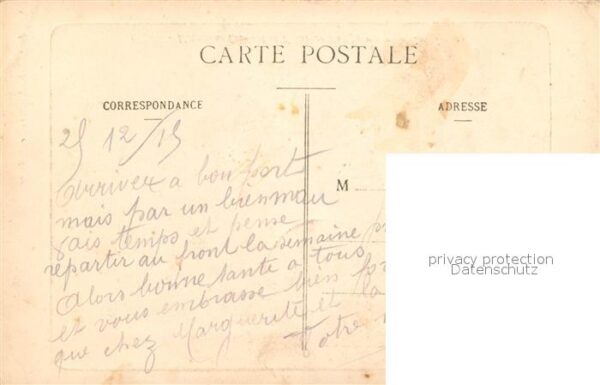 CARTE POSTALE
CORRESPONDANCE
ADRESSE
25 12/15
Arrivex a bon port
M
mais par un bien mau
vais temps et pense
repartir au front la semaine pr
Alors bonne sante a tous
et vous embrasse bien for
que chez Marguerite et la
Votre
privacy protection
Datenschutz